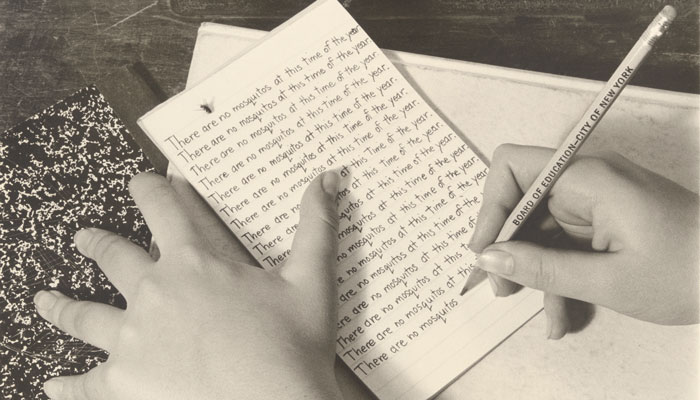 There are no mosquitos at this time of the year
There are no mosquitos at this time of the year.
There are no mosquitos at this time of the year.
There are no mosquitos at this time of the year.
There are no mosquitos at this time of the year.
There are no mosquitos at this time of the year.
There are no at this time of the year.
There are no at this time of the year.
There are at this time of the year.
There mosquitos at this time of the year.
mosquitos at this time of the year.
mosquitos at this time of the
no mosquitos at this time of the
are no mosquitos at this time of
There are no mosquitos at this
There are no mosquitos at this
There are no mosquitos
BOARD OF EDUCATION-CITY OF NEW YORK